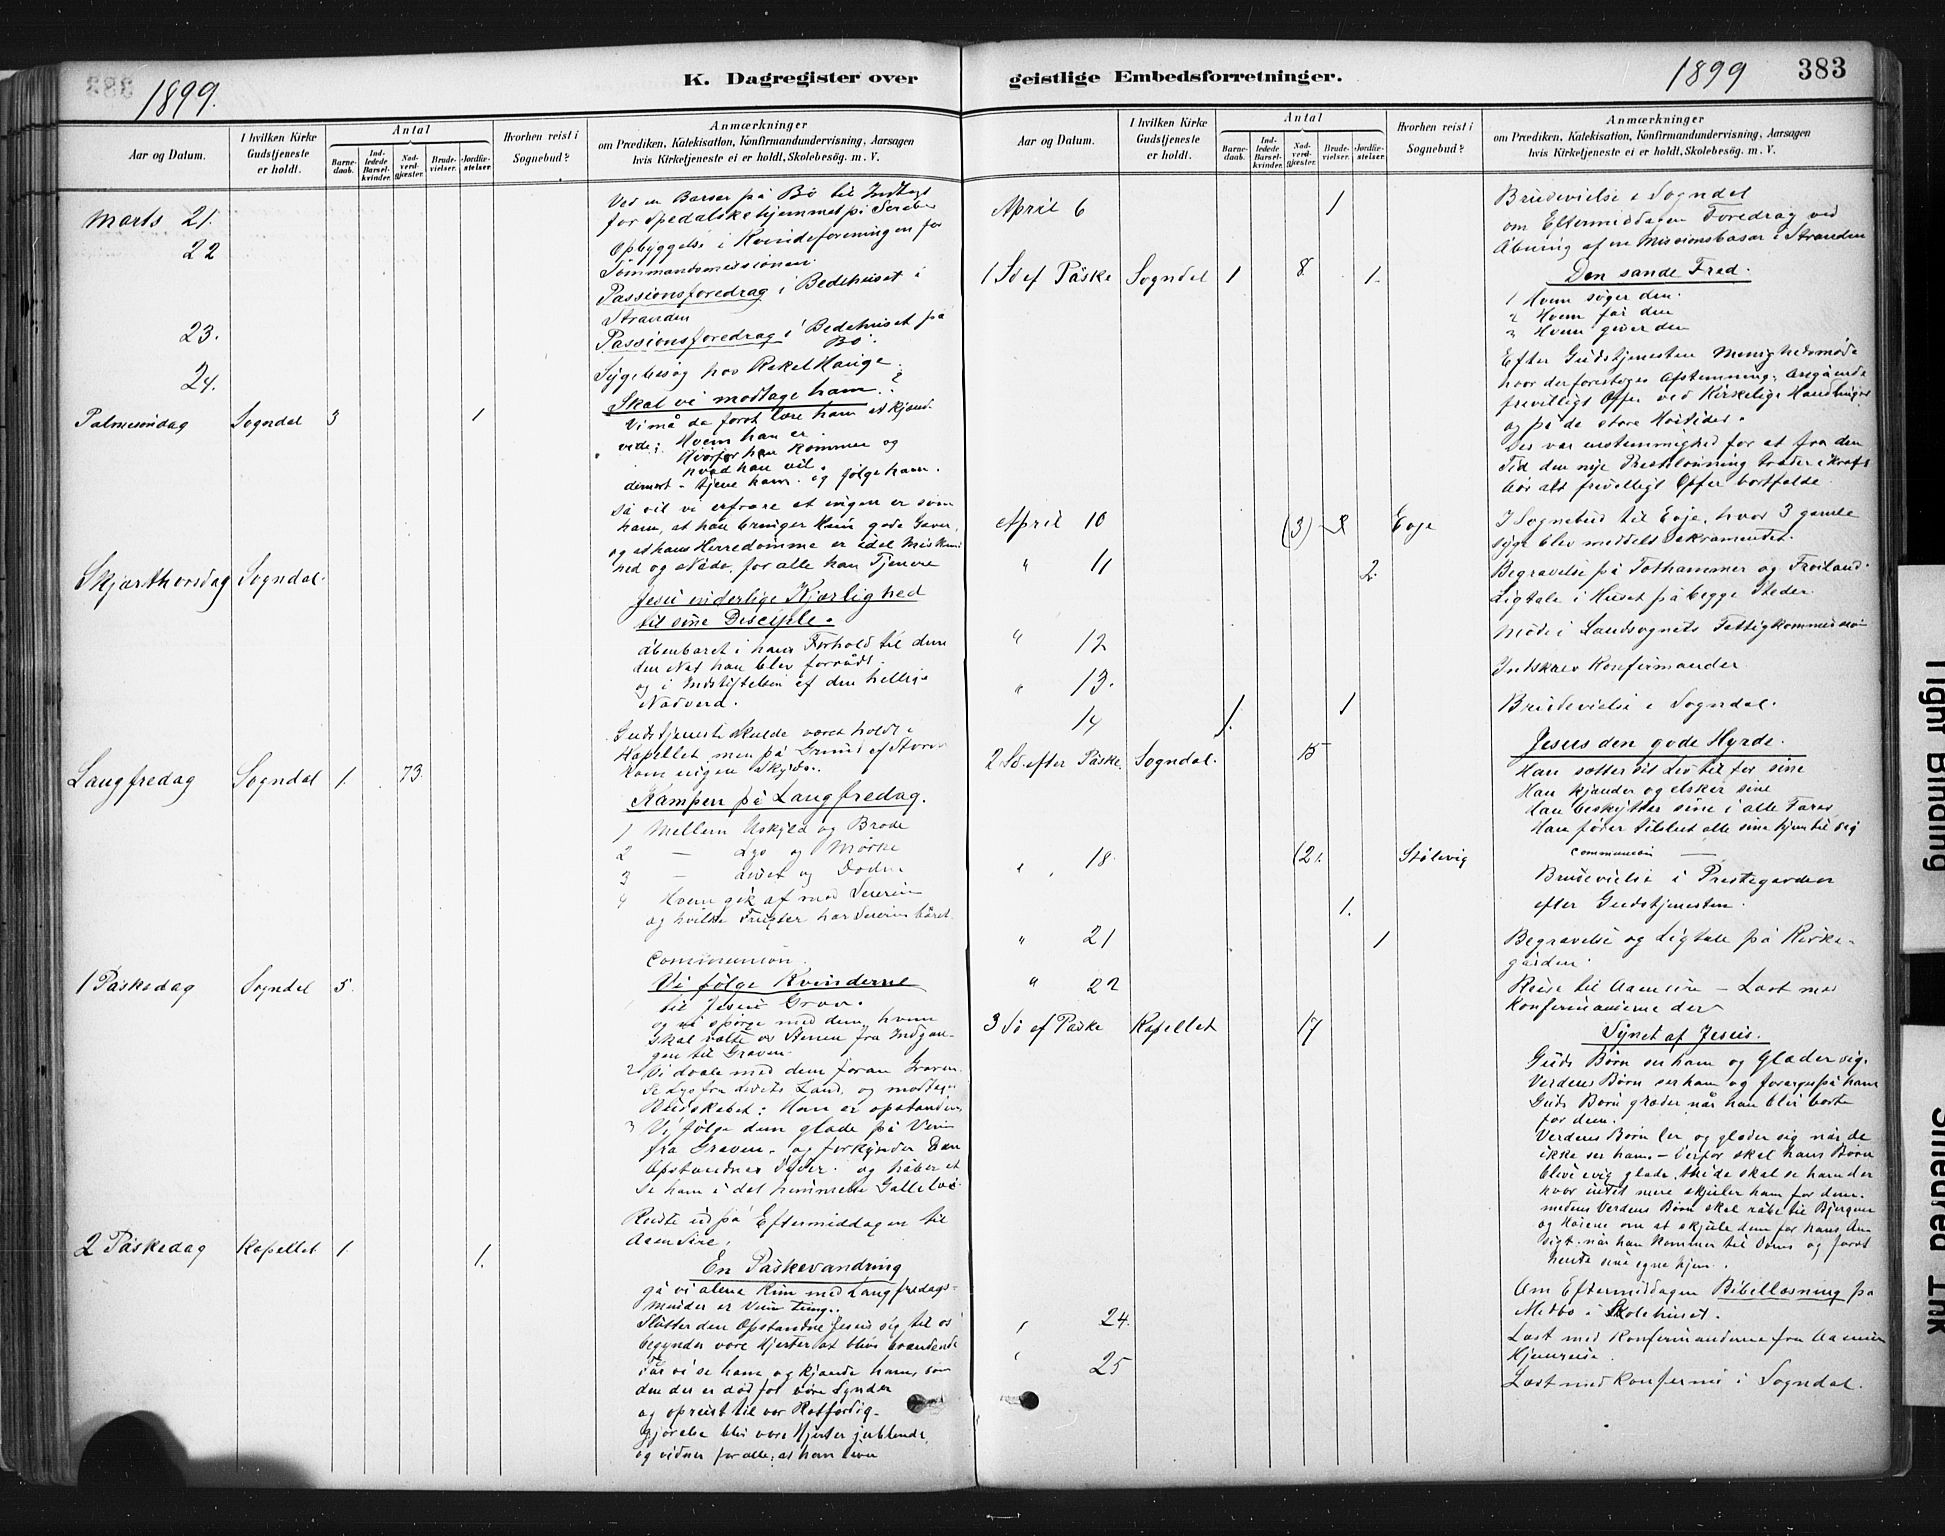 383
1899.
K. Dagregister over
Aar og Datum.
I hvilken Kirke Gudstjeneste er holdt.
Antal
Barne-daab.
Ind-ledede Barsel-kvinder.
Nad-verd-gjæster.
Brude-vielser.
Jordfæ-stelser.
Hvorhen reist i Sognebud?
Anmærkninger
om Prædiken, Katekisation, Konfirmandundervisning, Aarsagen
hvis Kirketjeneste ei er holdt, Skolebesøg. m. V.
Ved en Basar på Bø til Indtægt
Marts 21.
for Spedalskehjemmet på
22
Opbyggelse i Kvindeforeningen for
Sømmandsmissionen.
Passionsforedrag i Bedehuset i
Stranden
23.
Passionsforedrag i Bedehuset på
Bø.
24.
Sygebesøg hos Rakel Hauge.
Skal vi modtage ham?
Palmesøndag Sogndal 3 1
Vi må da først lære ham at kjende
vide: Hvem han er
Hvorfor han kommer og
hvad han vil.
dernæst - tjene ham. og følge ham.
Så vil vi erfare at ingen er som
ham, at han bringer gode Gaver,
og at hans Herredømme er idel Miskund
hed og Nåde, for alle han Tjenere
Skjærthorsdag Sogndal.
Jesu inderlige Kjærlighed
til sine Disciple.
åbenbaret i hans Forhold til dem
den Nat han blev forrådt.
og i Indstiftelsen af den hellige
Nadverd.
Gudstjeneste skulde været holdt i
Kapellet, men på Grund af Storm
kom ingen Skyds.
Langfredag Sogndal 1. 73.
Kampen på Langfredag.
1 Mellem Uskyld og Brøde
2 — Lys og Mørke
3 — Livet og Døden
4 Hvem gik af med Seieren
og hvilke Frugter har Seieren båret.
Communion.
1 Påskedag Sogndal 5.
Vi følge Kvinderne
til Jesu Grav.
og vi spørge med dem, hvem
skal vælte os Stenen fra Indgan-
gen til Graven.
2 Vi dvæle med dem foran Graven
Se Lys fra Livets Land, og modtage
Budskabet: Han er opstanden,
3 Vi følge dem glade på Veien
fra Graven. og forkynder Den
Opstandnes og håber at
se ham i det himmelske Gallilæa.
Reiste ud på Eftermiddagen til
Aaen Sire.
2 Påskedag Kapellet 1. 1.
En Påskevandring
gå vi alene kun med Langfredags-
minder er Veien tung.
Slutter den Opstandne Jesus sig til os
begynder vore Hjerter at blive brændende
Får vi se ham og kjende ham, som
den der er død for vore Synder
og opreist til vor Retfærdig-
gjørelse blir vore Hjerter jublende,
og vidner for alle: at han lever
geistlige Embedsforretninger.
1899
383
Aar og Datum.
I hvilken Kirke Gudstjeneste er holdt.
Antal
Barne-daab.
Ind-ledede Barsel-kvinder.
Nad-verd-gjæster.
Brude-vielser.
Jordfæ-stelser.
Hvorhen reist i Sognebud?
Anmærkninger
om Prædiken, Katekisation, Konfirmandundervisning, Aarsagen
hvis Kirketjeneste ei er holdt, Skolebesøg. m. V.
April 6 1
Brudevielse i Sogndal
om Eftermiddagen Foredrag ved
Åbning af en Missionsbasar i Stranden
1 Sø ef Påske Sogndal 1 8 1.
Den sande Fred.
1 Hvem søger den.
2 Hvem får den
3 Hvem giver den
Efter Gudstjenesten Menighedsmøde
hvor der foretoges Afstemning, angående
frivilligt Offer ved Kirkelige Handlinger
og på de store Høitider.
Der var enstemmighed for at fra den
Tid den nye Prestelønning træder i kraft
bør alt frivilligt Offer bortfalde.
April 10 (3) Eoje
I Sognebud til Eoje, hvor 3 gamle
syge blev meddelt Sakramentet.
" 11 2.
Begravelse på Tothammer og Frøiland.
Ligtale i Huset på begge Steder.
" 12
Møde i Landsognets Fattigkommission
" 13.
Indskrev Konfirmander
14 1. 1
Brudevielse i Sogndal.
2 Sø efter Påske. Sogndal. 15
Jesus den gode Hyrde.
Han sætter sit Liv til for sine
Han kjender og elsker sine
Han beskytter sine i alle Farer
Han fører tilsidst alle sine hjem til sig
communion —
" 18. (2). Stølevig
Brudevielse i Prestegarden
1.
efter Gudstjenesten.
" 21 1
Begravelse og Ligtale på Kirke-
gården.
" 22
Reise til Aaensire — Læst med
Konfirmanderne der
3 Sø ef Påske Kapellet 17
Synet af Jesus.
Guds Børn ser ham og glæder sig.
Verdens Børn ser ham og forarges på ham
Guds Børn græder når han blir borte
for dem.
Verdens Børn ler og glæder sig når de
ikke ser ham. — Derfor skal hans Børn
blive evig glade, thi de skal se ham der
hvor intet mere skjuler ham for dem.
medens Verdens Børn skal råbe til Bjergene
og Høiene om at skjule dem for hans An-
sigt. når han kommer til Doms og først
hente sine egne hjem.
Om Eftermiddagen Bibellæsning på
Medbø i Skolehuset.
" 24.
Læst med Konfirmanderne fra Aaensire
Hjemreise.
" 25
Læst med Konfirm i Sogndal.
Tight Binding
Smeared Ink